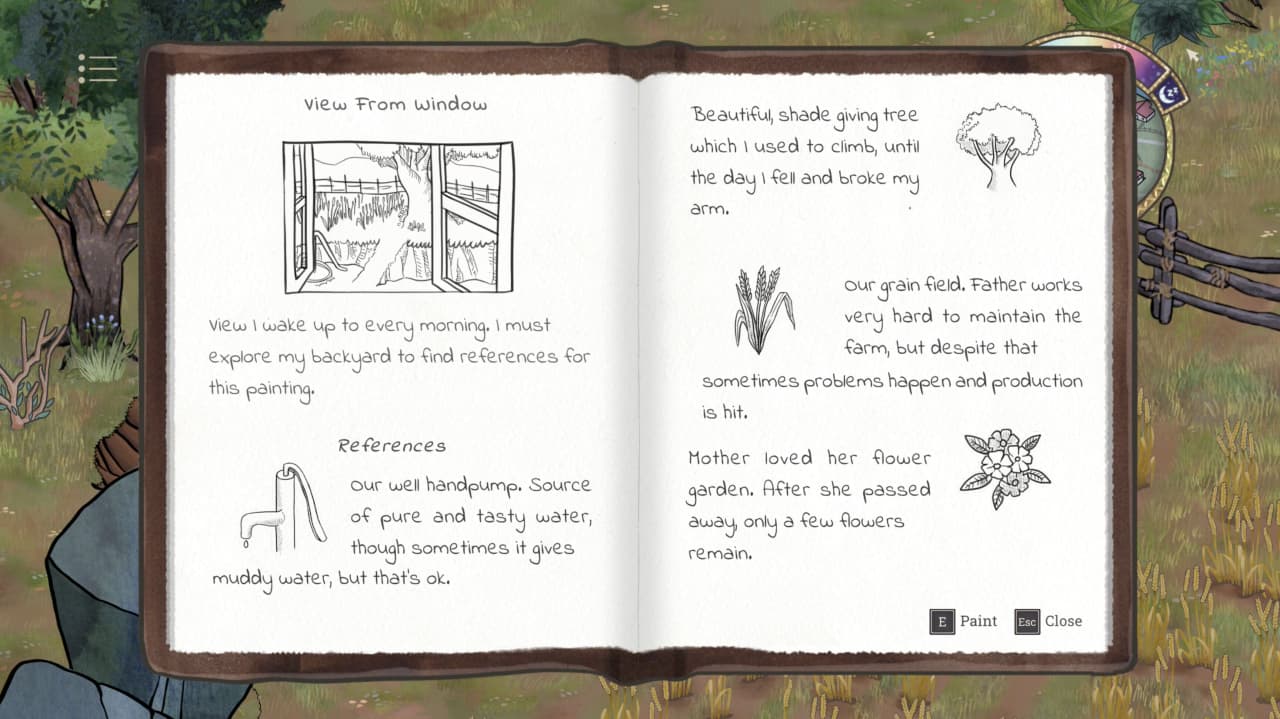 View From Window
View I wake up to every morning. I must
explore my backyard to find references for
this painting.
References
Our well handpump. Source
of pure and tasty water,
though sometimes it gives
muddy water, but that's ok.
Beautiful, shade giving tree
which I used to climb, until
the day I fell and broke my
arm.
Our grain field. Father works
very hard to maintain the
farm, but despite that
sometimes problems happen and production
is hit.
Mother loved her flower
garden. After she passed
away, only a few flowers
remain.
E Paint Esc Close